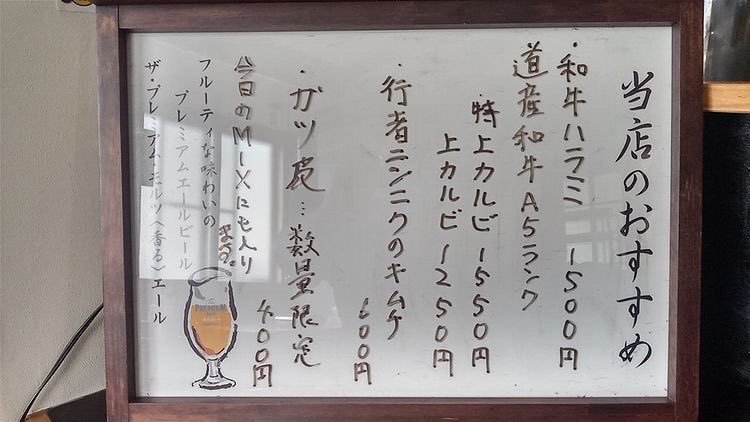 当店のおすすめ
・和牛ハラミ 1500円
道産和牛A5ランク
・特上カルビ 1550円
上カルビ 1250円
・行者ニンニクのキムチ 600円
・ガツ尻…数量限定 400円
今日のMIXにも入り
まるっ
フルーティな味わいの
プレミアムエールビール
ザ・プレミアム・モルツ〈香る〉エール
The
PREMIUM